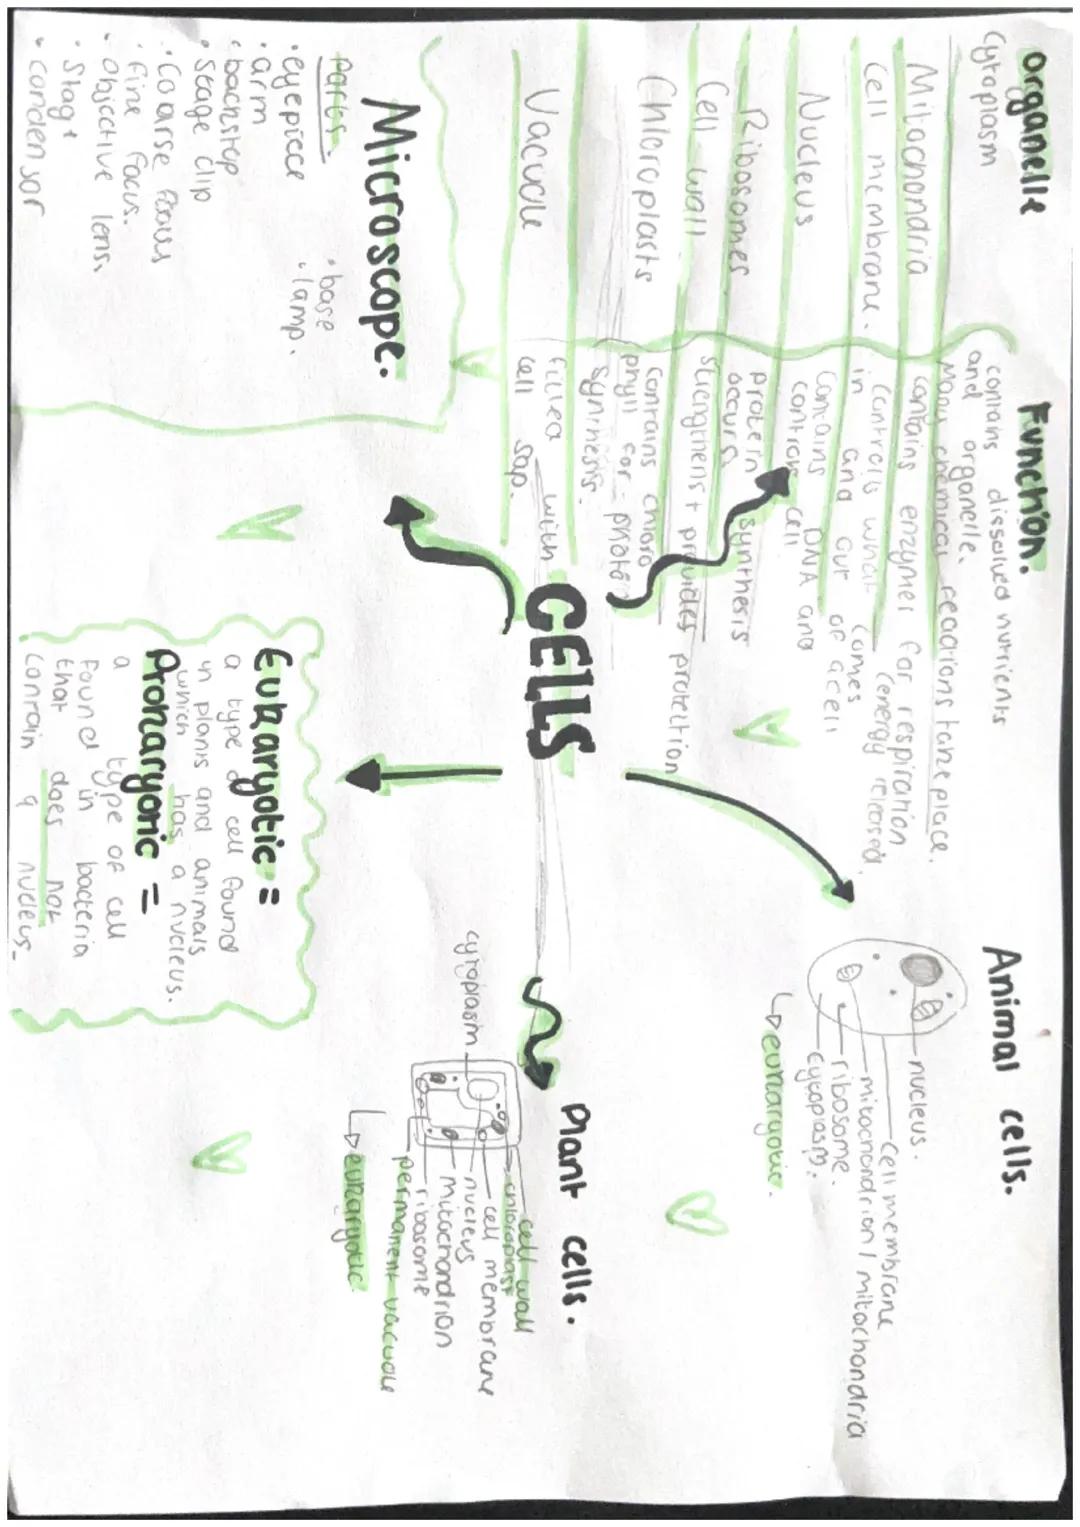 organelle Function.
Cytoplasm contains dissolved nutrients
and organelle.
Many chemical reactions take place.
Mitochondria contains enzymes for respiration
(energy released.
Cell membrane. Controls what comes
in and out of a cell
Nucleus Contains DNA and
controls cell
Ribosomes protein synthesis
occurs
Cell wall strengthens + provides protection
Chloroplasts Contains chloro
phyll for photo
synthesis.
Vacuole filled with
cell sap.
CELLS
Animal cells.
nucleus.
cell membrane
mitochondrion / mitochondria
ribosome.
cytoplasm.
eukaryotic.
Plant cells.
cell wall
chloroplast
cell membrane
nucleus
mitochondrion
ribosome
permanent vacuole
cytoplasm
eukaryotic.
Microscope.
parts.
• eyepiece
• arm
• backstop
• stage clip
• Coarse focus
• fine focus.
• Objective lens.
• Stage
• condensor
• base
• lamp.
Eukaryotic =
a type of cell found
in plants and animals
which has a nucleus.
Prokaryotic =
a type of cell
found in bacteria
that does not
contain a nucleus.